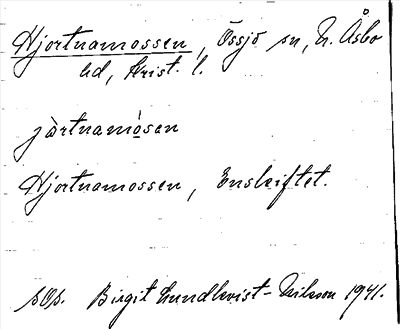 Hjortnamossen, Össjö sn, N. Åsbo
hd, Krist. l.
jàrtnamósen
Hjortnamossen, Enskiftet.
Birgit Lundkvist-Nilsson 1941.